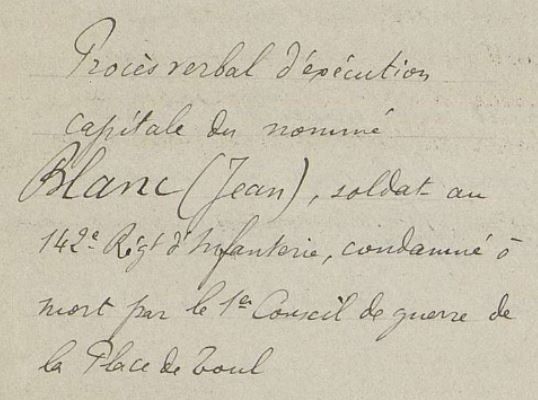 Procès verbal d'exécution
capitale du nommé
Blanc (Jean), soldat au
142e Régt d'Infanterie, condamné à
mort par le 1er Conseil de guerre de
la Place de Toul